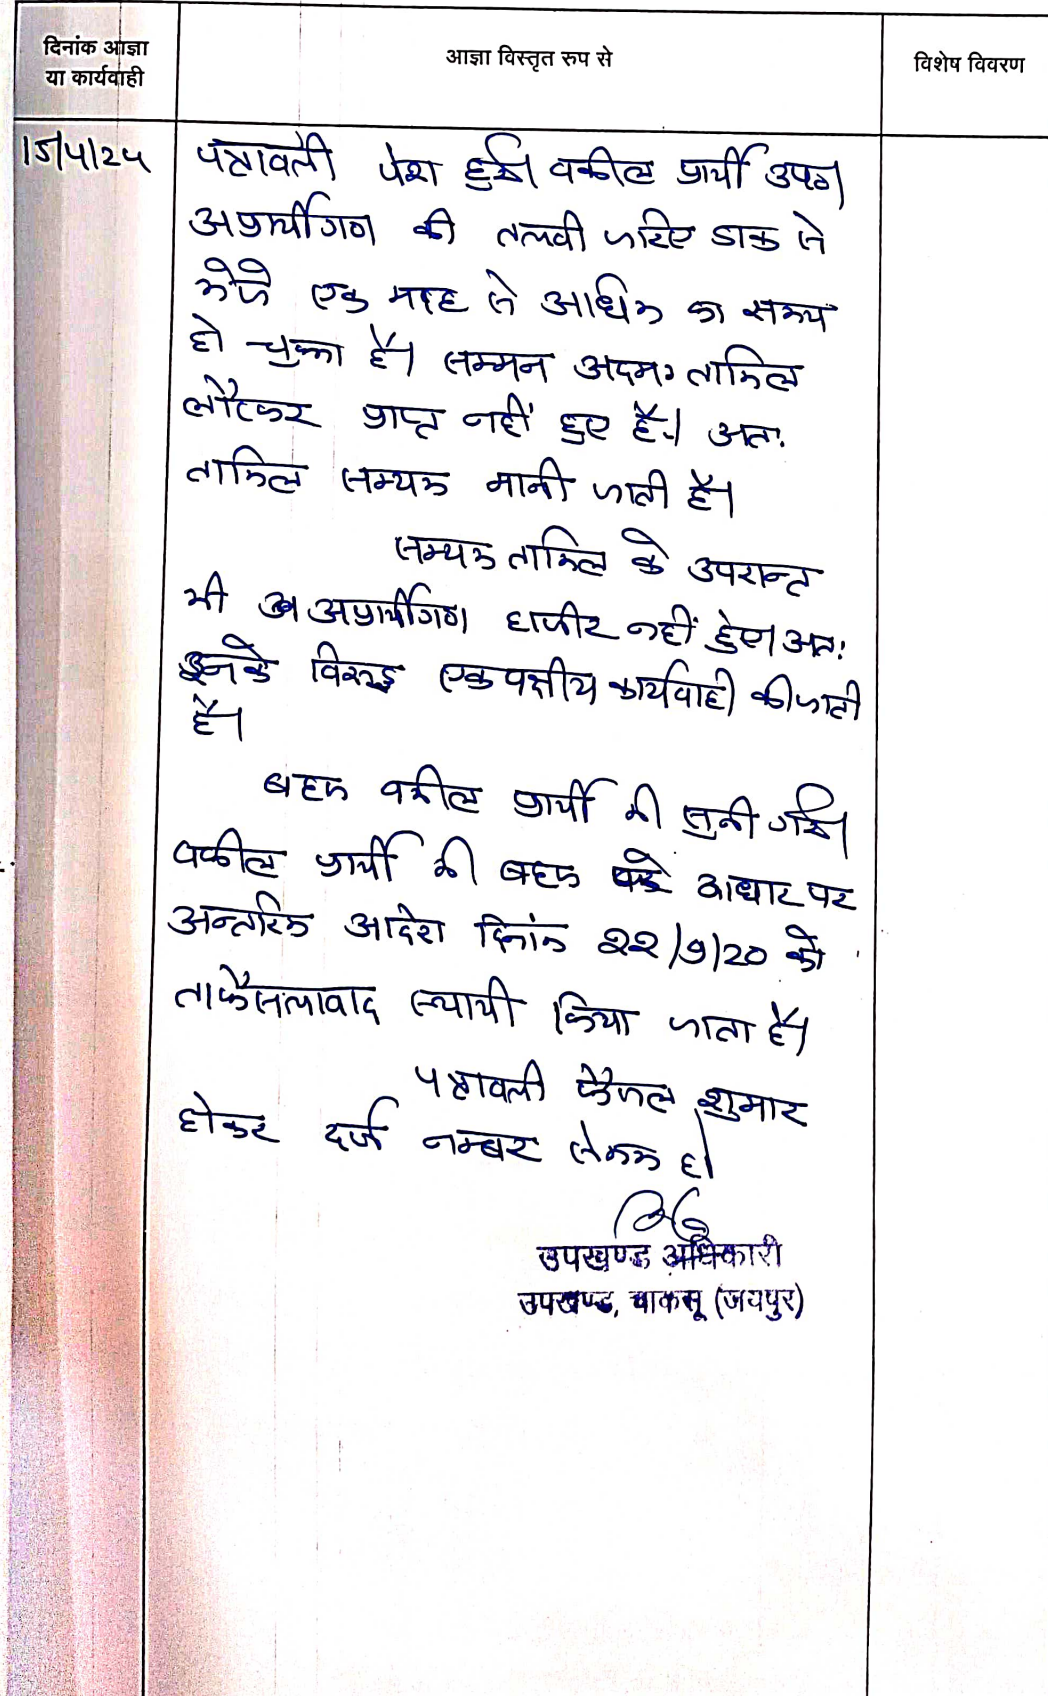 दिनांक आज्ञा
या कार्यवाही
आज्ञा विस्तृत रुप से
विशेष विवरण
15/4/25
पत्रावली पेश हुई। वकील प्रार्थी उप०।
अप्रार्थीगण की तलवी जरिए डाक से
भेजे एक माह से अधिक का समय
हो चुका है। सम्मन अदम तामिल
लौटकर प्राप्त नहीं हुए है। अतः
तामिल सम्यक मानी जाती है।
सम्यक तामिल के उपरान्त
भी अप्रार्थीगण हाजीर नहीं हुए। अतः
इनके विरूद्ध एक पक्षीय कार्यवाही की जाती
है।
बहस वकील प्रार्थी की सुनी गई।
वकील प्रार्थी की बहस के आधार पर
अन्तरिम आदेश दिनांक 22/9/20 को
ताफैसलावाद स्थायी किया जाता है।
पत्रावली फैसल शुमार
होकर दर्ज नम्बर से कम हो।
उपखण्ड अधिकारी
उपखण्ड, चाकसू (जयपुर)